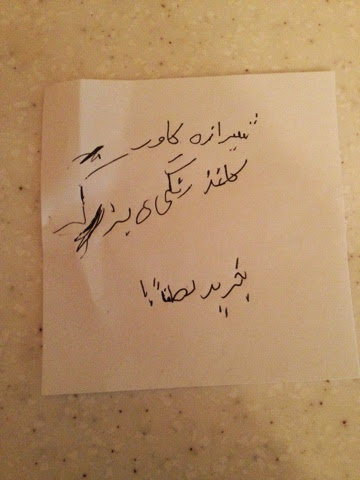 شیرازه کاور
کاغذ رنگی‌ای بزرگ
بخرید لطفاً بابا